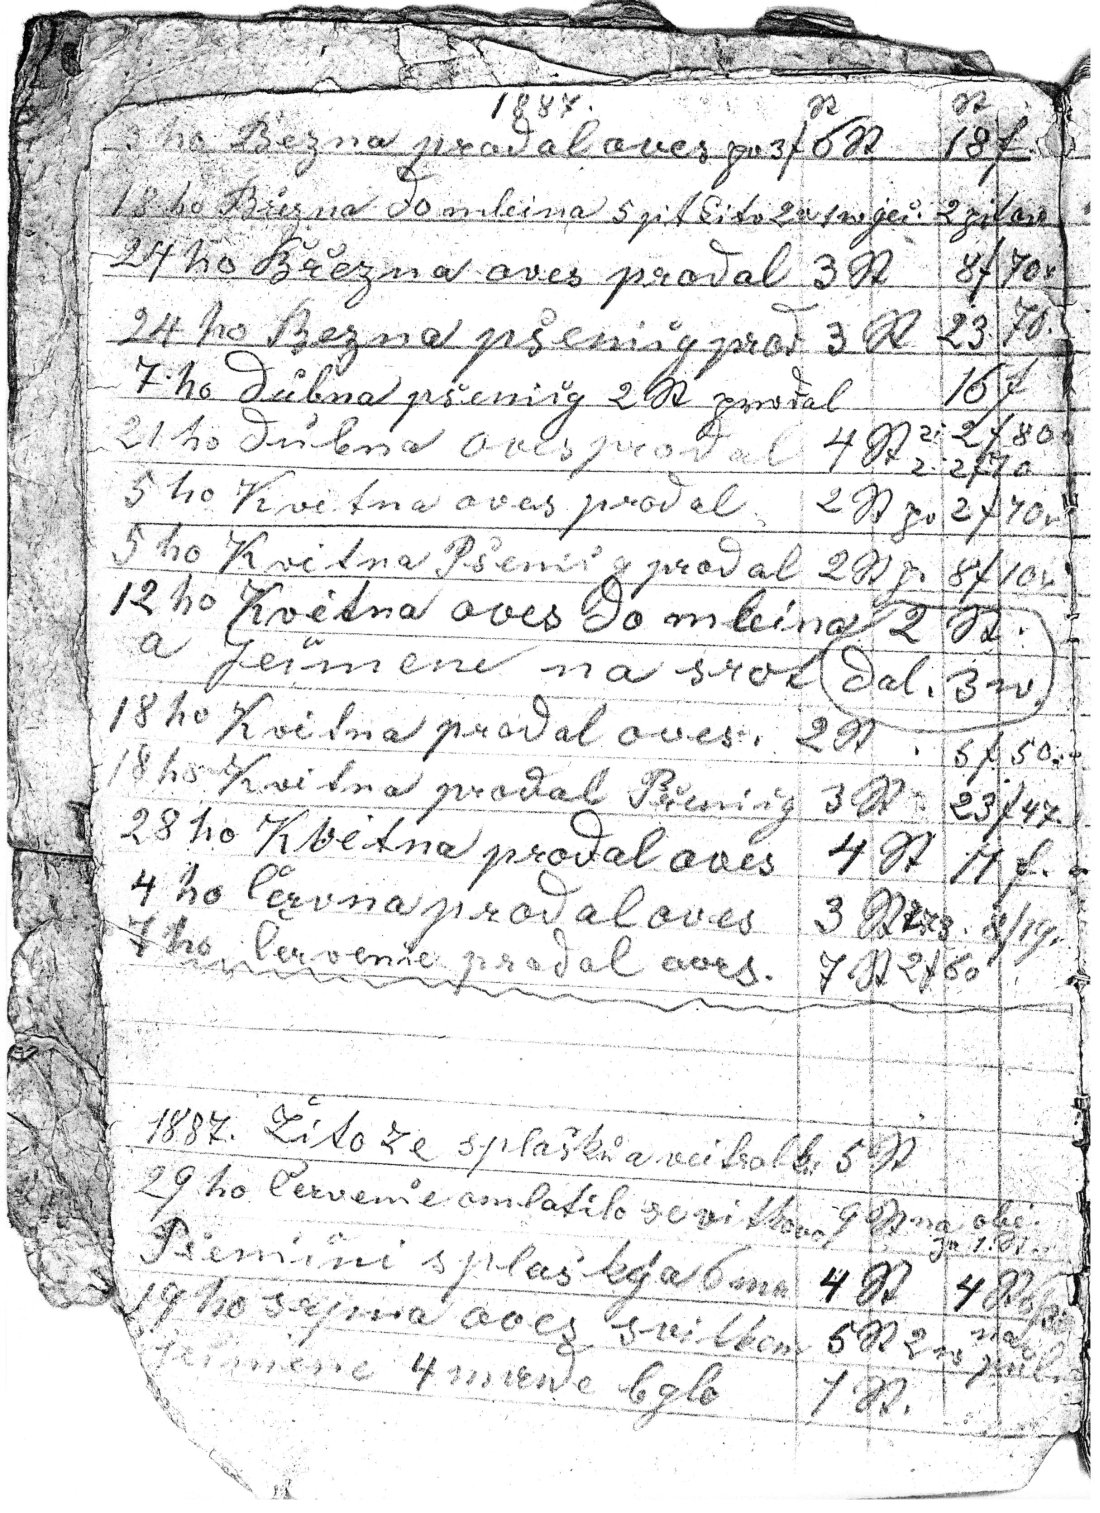 1887. St St
3 ho Bezna prodal oves po 3f 6 St 18 f.
18 ho Března do mleina 5 pit žito 2 pit
24 ho Března oves prodal 3 St 8f 70
24 ho Bezna pšenig prod 3 St 23 70.
7. ho Dubna pšenig 2 St prodal 16 f
21 ho Dubna oves prodal 4 St 2f 80
2f 70
5 ho Kvitna oves prodal 2 St po 2f 70
5 ho Kvitna Pšenig prodal 2 St p. 8f 10
12 ho Května oves do mleina 2 St.
a Ječmene na srot dal. 3 w.
18 ho Kvitna prodal oves. 2 St. 5f 50
18 ho Kvitna prodal Pšenig 3 St 23f 47
28 ho Kvitna prodal oves 4 St 11 f.
4 ho Června prodal oves 3 St 8f 19.
7 ho Červenie prodal oves. 7 St 2f 60
1887. Žito ze splašků a veitrolku 5 St
29 ho Červenie omlatilo se vitkova 9 St na obě.
za 1. St
Pšenični splašky a 6 mn 4 St 4 St
19 ho srpna oves svitkem 5 St 2
ječmene 4 mnde bylo 1 St.